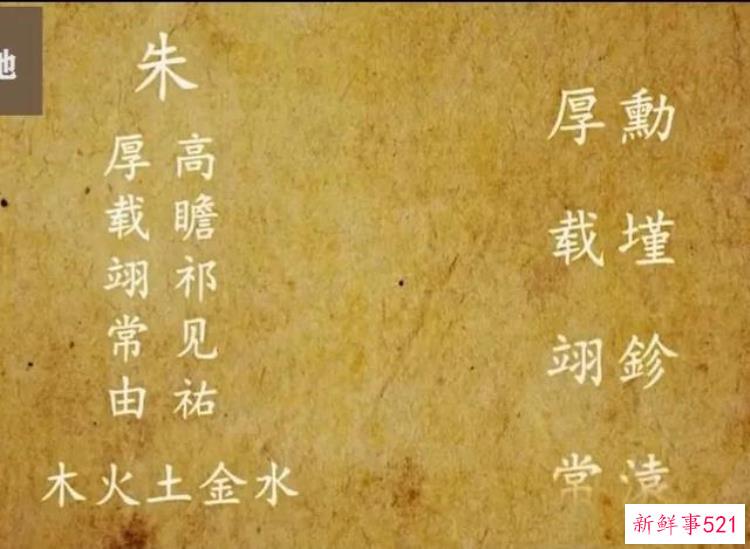 朱
高瞻祁见祐
厚载翊常由
木火土金水
厚勳
载墐
翊鉁
常溒
新鲜事521